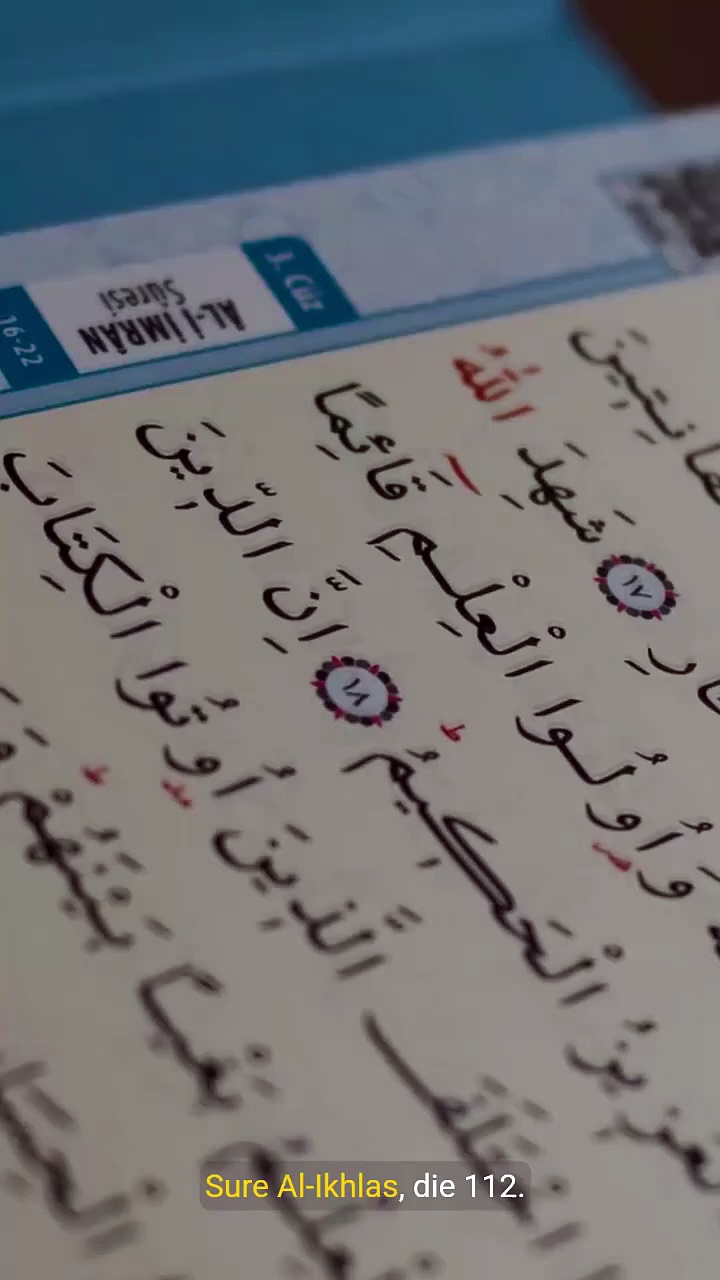 3. Cüz
AL-İ İMRÂN
Sûresi
16-22
۝١٧ شَهِدَ اللّٰهُ
وَأُولُوا الْعِلْمِ قَائِمًا
الْحَكِيمُ ۝١٨ اِنَّ الدِّينَ
اخْتَلَفَ الَّذِينَ أُوتُوا الْكِتَابَ
بَغْيًا بَيْنَهُمْ
Sure Al-Ikhlas, die 112.